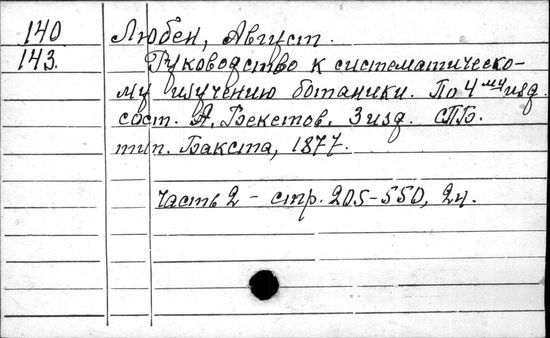 140
143.
Любен, Август.
Руководство к систематическо-
му изучению ботаники. По 4му изд.
сост. А. Бекетов. 3 изд. СПБ.
тип. Бакста, 1877.
Часть 2 - стр. 205-550, 24.